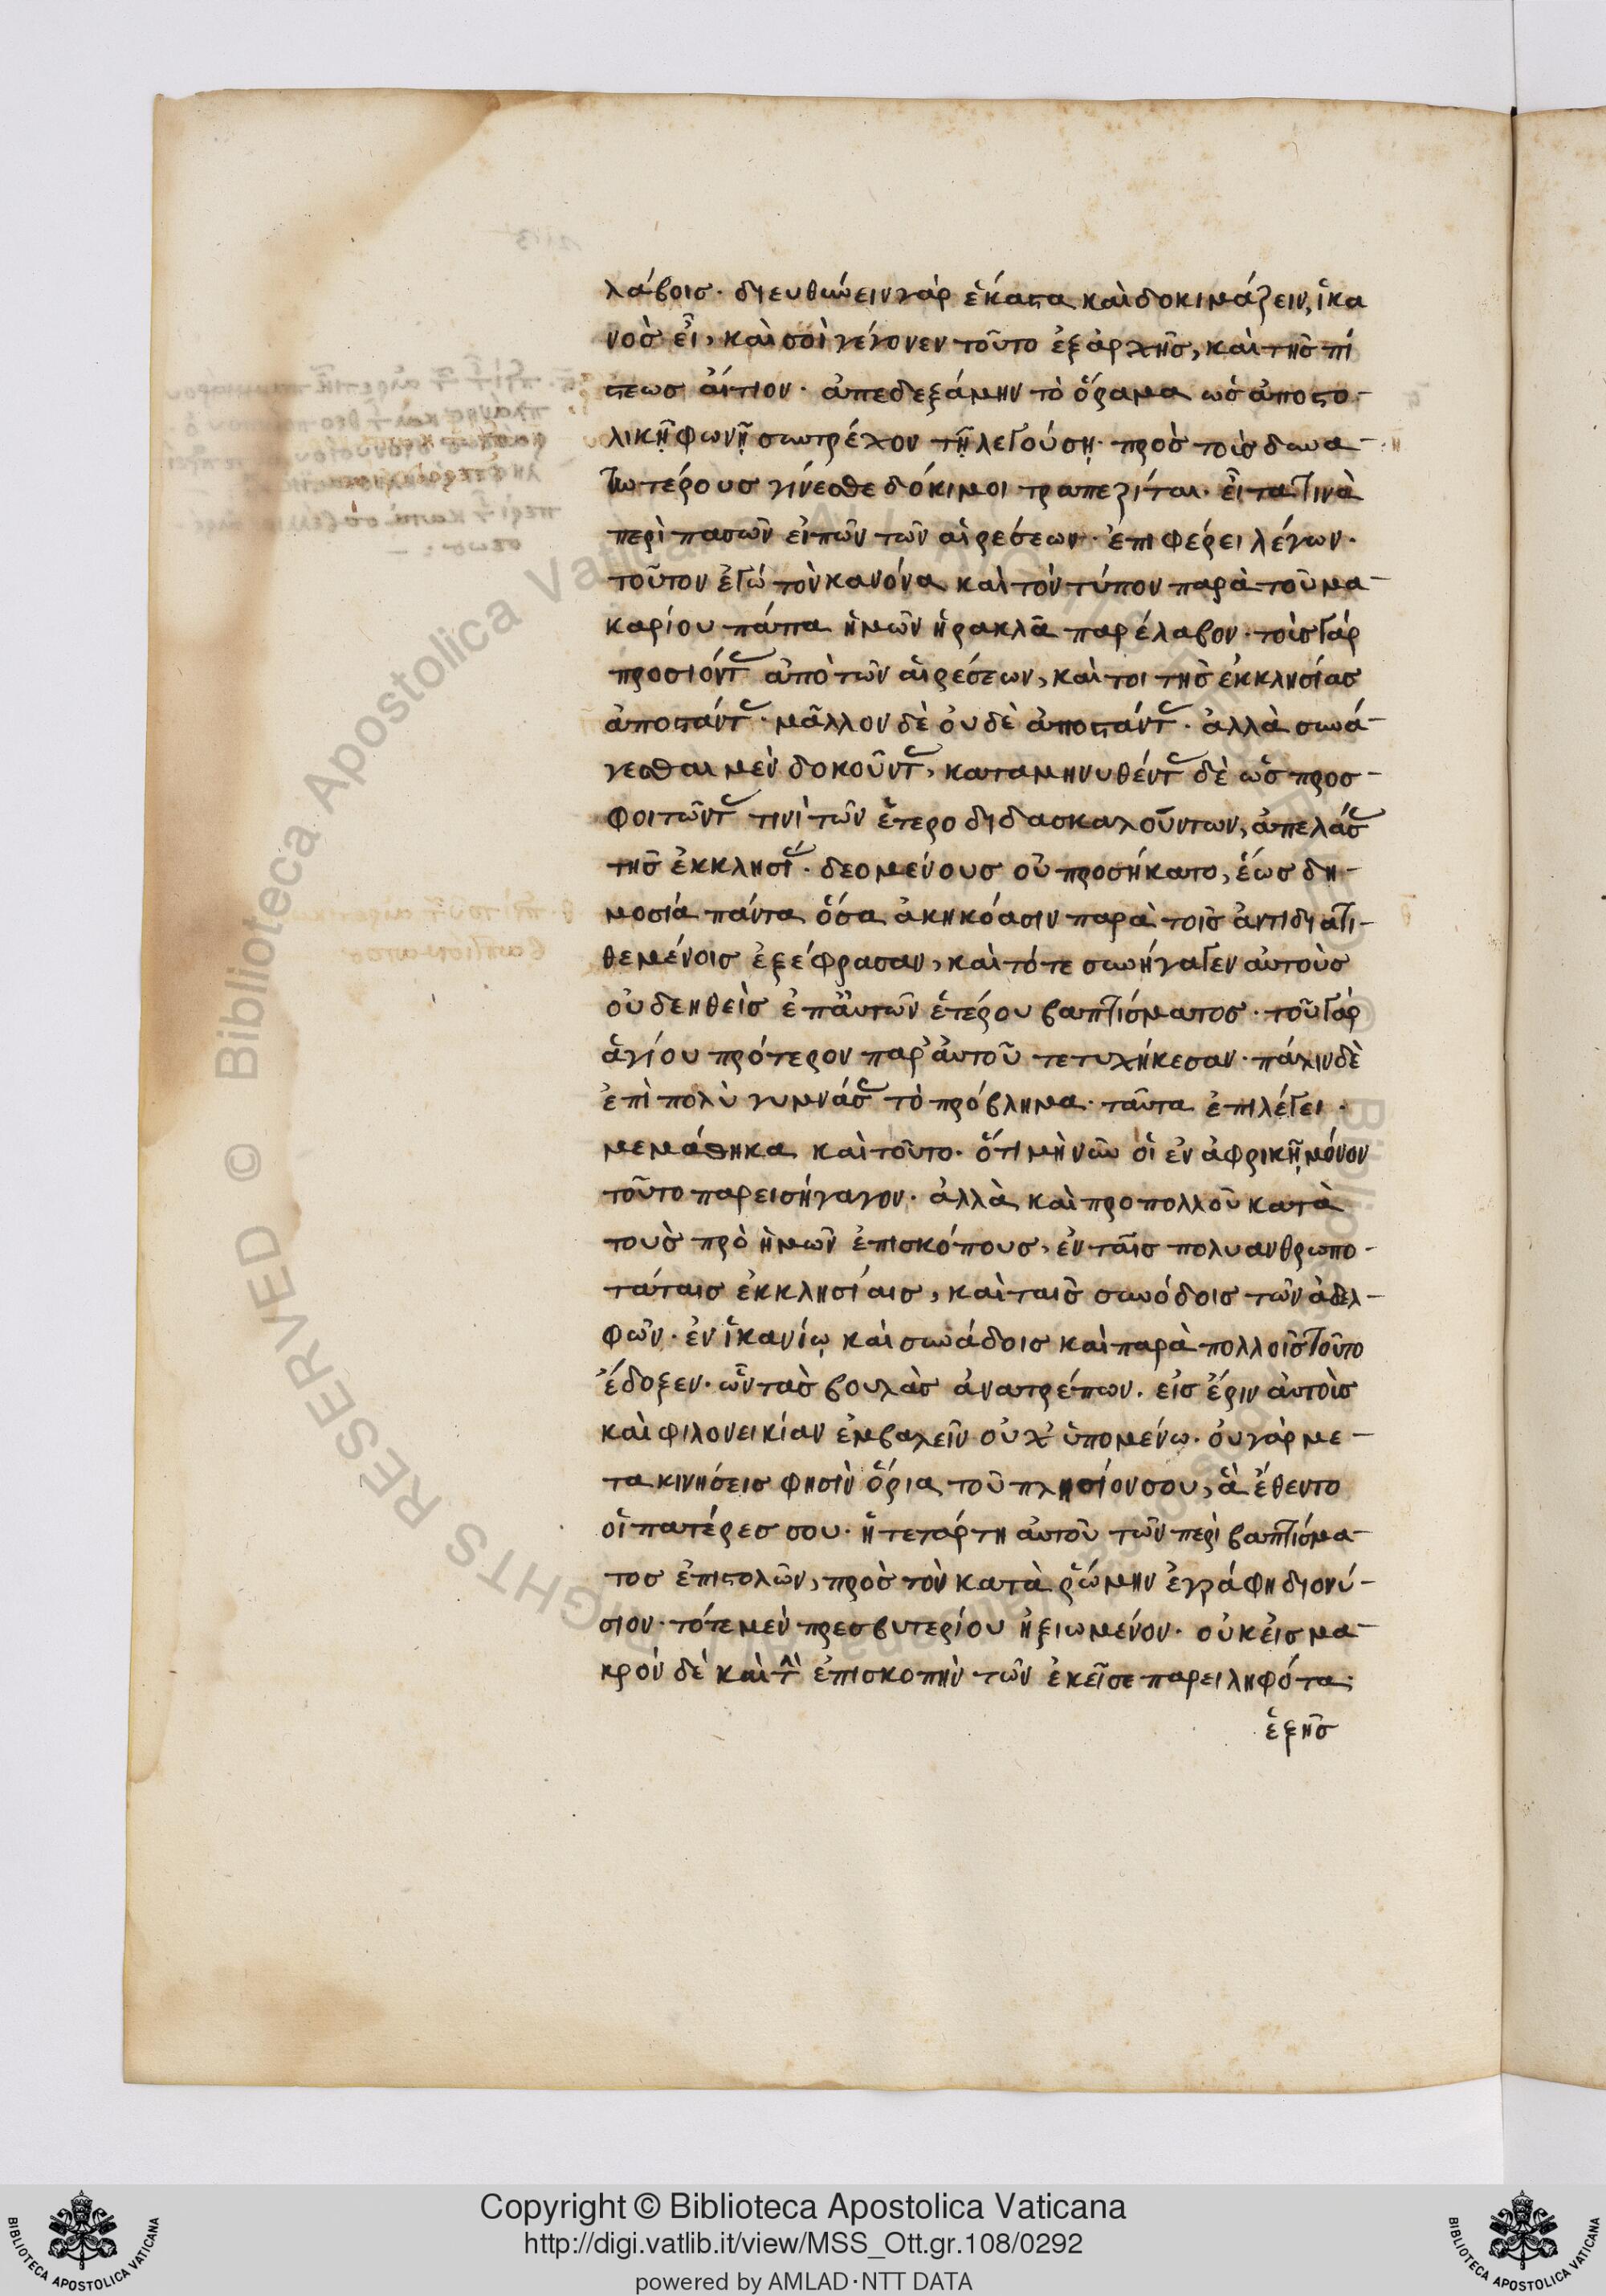 λάβοις· διευθύνειν γὰρ ἕκαστα καὶ δοκιμάζειν, ἱκα
νὸς εἶ, καὶ σοὶ γέγονεν τοῦτο ἐξαρχῆς, καὶ τῆς πί
στεως αἴτιον· ἀπεδεξάμην τὸ ὅραμα ὡς ἀποστο-
λικῇ φωνῇ συντρέχον τῇ λεγούσῃ· πρὸς τοὺς δυνα-
τωτέρους γίνεσθε δόκιμοι τραπεζίται· εἶτα τινὰ
περὶ πασῶν εἰπὼν τῶν αἱρέσεων· ἐπιφέρει λέγων·
τοῦτον ἐγὼ τὸν κανόνα καὶ τὸν τύπον παρὰ τοῦ μα-
καρίου πάπα ἡμῶν ἡρακλᾶ παρέλαβον· τοὺς γὰρ
προσιόντας ἀπὸ τῶν αἱρέσεων, καί τοι τῆς ἐκκλησίας
ἀποστάντας· μᾶλλον δὲ οὐδὲ ἀποστάντας· ἀλλὰ συνά-
γεσθαι μὲν δοκοῦντας, καταμηνυθέντας δὲ ὡς προσ-
φοιτῶντας τινὶ τῶν ἑτεροδιδασκαλούντων, ἀπελάσας
τῆς ἐκκλησίας· δεομένους οὐ προσήκατο, ἕως δη-
μοσίᾳ πάντα ὅσα ἀκηκόασιν παρὰ τοῖς ἀντιδιατι-
θεμένοις ἐξέφρασαν, καὶ τότε συνήγαγεν αὐτοὺς
οὐ δεηθεὶς ἐπ' αὐτῶν ἑτέρου βαπτίσματος· τοῦ γὰρ
ἁγίου πρότερον παρ' αὐτοῦ τετυχήκεσαν· πάλιν δὲ
ἐπὶ πολὺ γυμνάσας τὸ πρόβλημα· ταῦτα ἐπιλέγει·
μεμάθηκα καὶ τοῦτο· ὅτι μὴ νῦν οἱ ἐν ἀφρικῇ μόνον
τοῦτο παρεισήγαγον· ἀλλὰ καὶ προπολλοῦ κατὰ
τοὺς πρὸ ἡμῶν ἐπισκόπους, ἐν ταῖς πολυανθρωπο-
τάταις ἐκκλησίαις, καὶ ταῖς συνόδοις τῶν ἀδελ-
φῶν· ἐν ἱκανίῳ καὶ συνάδοις καὶ παρὰ πολλοῖς τοῦτο
ἔδοξεν· ὧν τὰς βουλὰς ἀνατρέπων· εἰς ἔριν αὐτοὺς
καὶ φιλονεικίαν ἐμβαλεῖν οὐχ' ὑπομένω· οὐ γὰρ με-
τακινήσεις φησὶν ὅρια τοῦ πλησίον σου, ἃ ἔθεντο
οἱ πατέρες σου· ἡ τετάρτη αὐτοῦ τῶν περὶ βαπτίσμα-
τος ἐπιστολῶν, πρὸς τὸν κατὰ ῥώμην ἐγράφη διονύ-
σιον· τότε μὲν πρεσβυτερίου ἠξιωμένον· οὐκ εἰς μα-
κρὸν δὲ καὶ τὴν ἐπισκοπὴν τῶν ἐκεῖσε παρειληφότα·
ἑξῆς
Copyright © Biblioteca Apostolica Vaticana
http://digi.vatlib.it/view/MSS_Ott.gr.108/0292
powered by AMLAD·NTT DATA